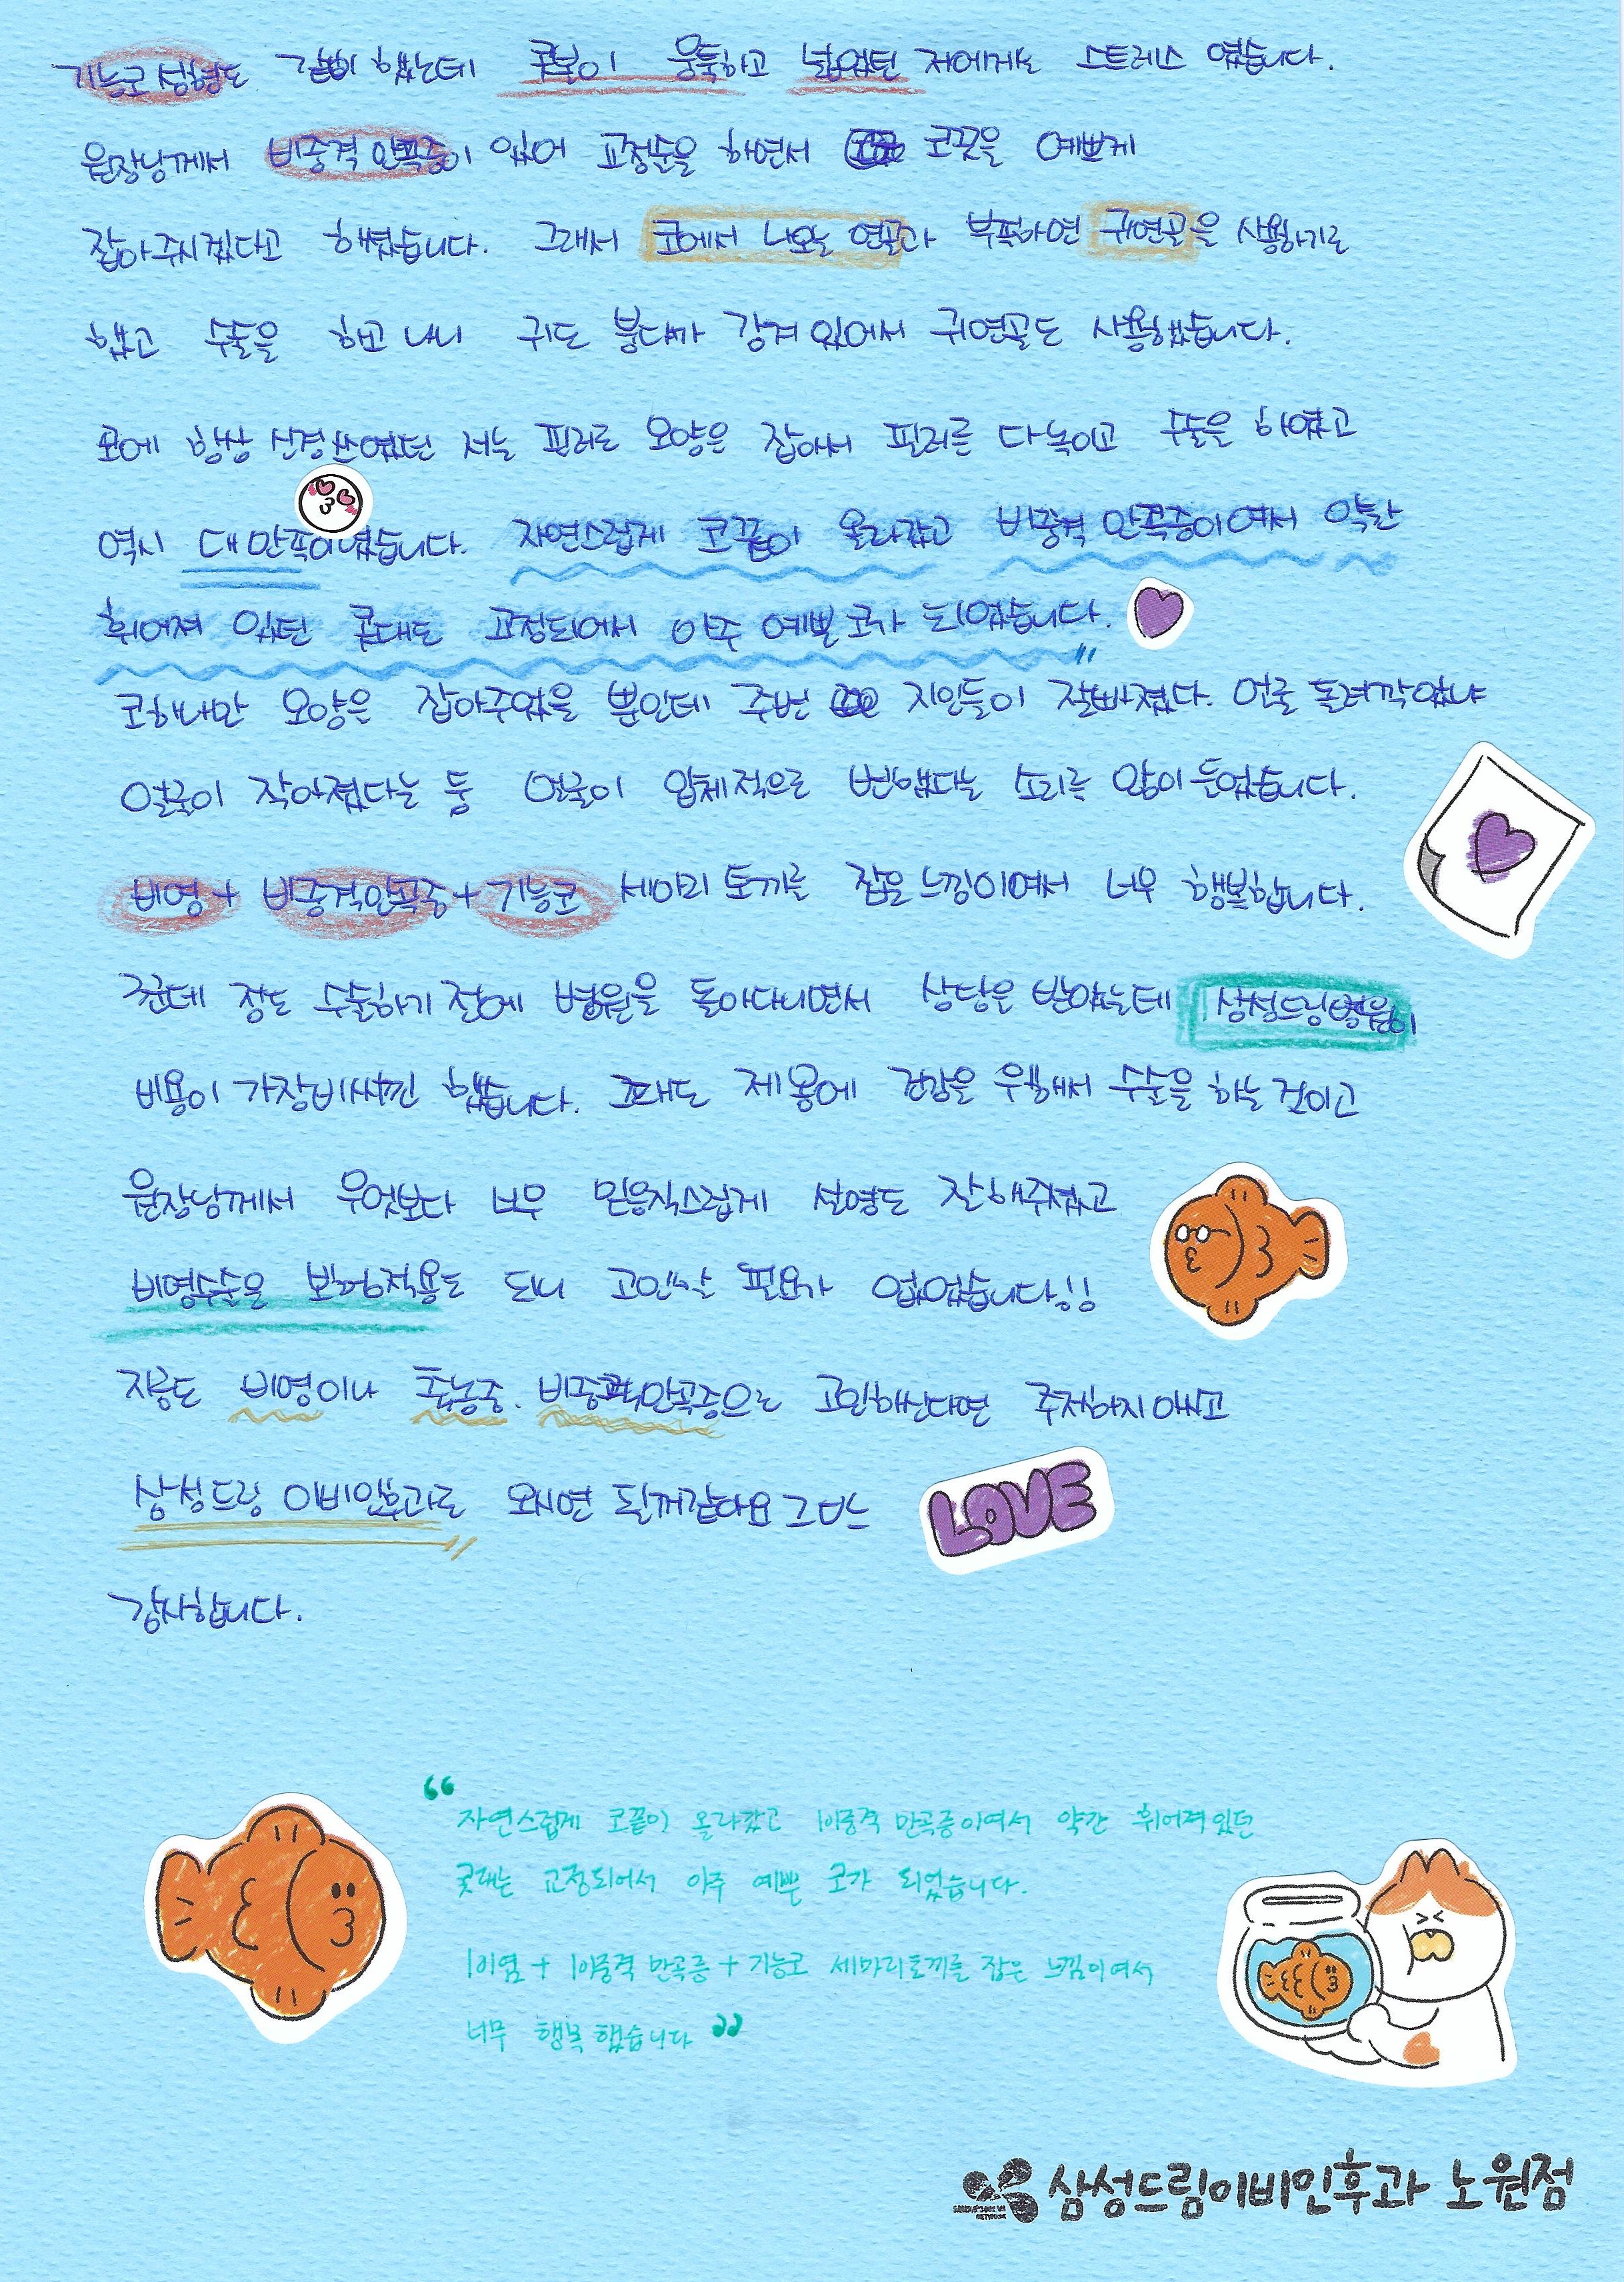 기능코성형도 같이 했는데 콧볼이 뭉툭하고 넓었던 저에게는 스트레스 였습니다.
원장님께서 비중격 만곡증이 있어 교정술을 하면서 코끝을 예쁘게
잡아주시겠다고 하셨습니다. 그래서 코에서 나오는 연골과 부족하면 귀연골을 사용하기로
했고 수술을 하고 나니 귀도 붕대가 감겨 있어서 귀연골도 사용했습니다.
코에 항상 신경쓰였던 저는 필러로 모양을 잡아서 필러를 다녹이고 수술을 하였고
역시 대만족이였습니다. 자연스럽게 코끝이 올라갔고 비중격 만곡증이여서 약간
휘어져 있던 콧대도 교정되어서 아주 예쁜 코가 되었습니다.
코하나만 모양을 잡아주었을 뿐인데 주변 지인들이 살빠졌다. 얼굴 돌려깍았냐
얼굴이 작아졌다는 둥 얼굴이 입체적으로 변했다는 소리를 많이 들었습니다.
비염 + 비중격만곡증 + 기능코 세마리 토끼를 잡은 느낌이여서 너무 행복합니다.
근데 저도 수술하기 전에 병원을 돌아다니면서 상담을 받았는데 삼성드림병원이
비용이 가장비싸긴 했습니다. 그래도 제 몸에 건강을 위해서 수술을 하는 것이고
원장님께서 무엇보다 너무 믿음직스럽게 설명도 잘해주셨고
비염수술은 보험적용도 되니 고민할 필요가 없었습니다!!
지금도 비염이나 축농증. 비중격만곡증으로 고민하신다면 주저하지마시고
삼성드림 이비인후과로 오시면 될꺼같아요 그럼
감사합니다.
“ 자연스럽게 코끝이 올라갔고 비중격 만곡증이여서 약간 휘어져있던
콧대는 교정되어서 아주 예쁜 코가 되었습니다.
비염 + 비중격 만곡증 + 기능코 세마리토끼를 잡은 느낌이여서
너무 행복 했습니다 ”
LOVE
삼성드림이비인후과 노원점